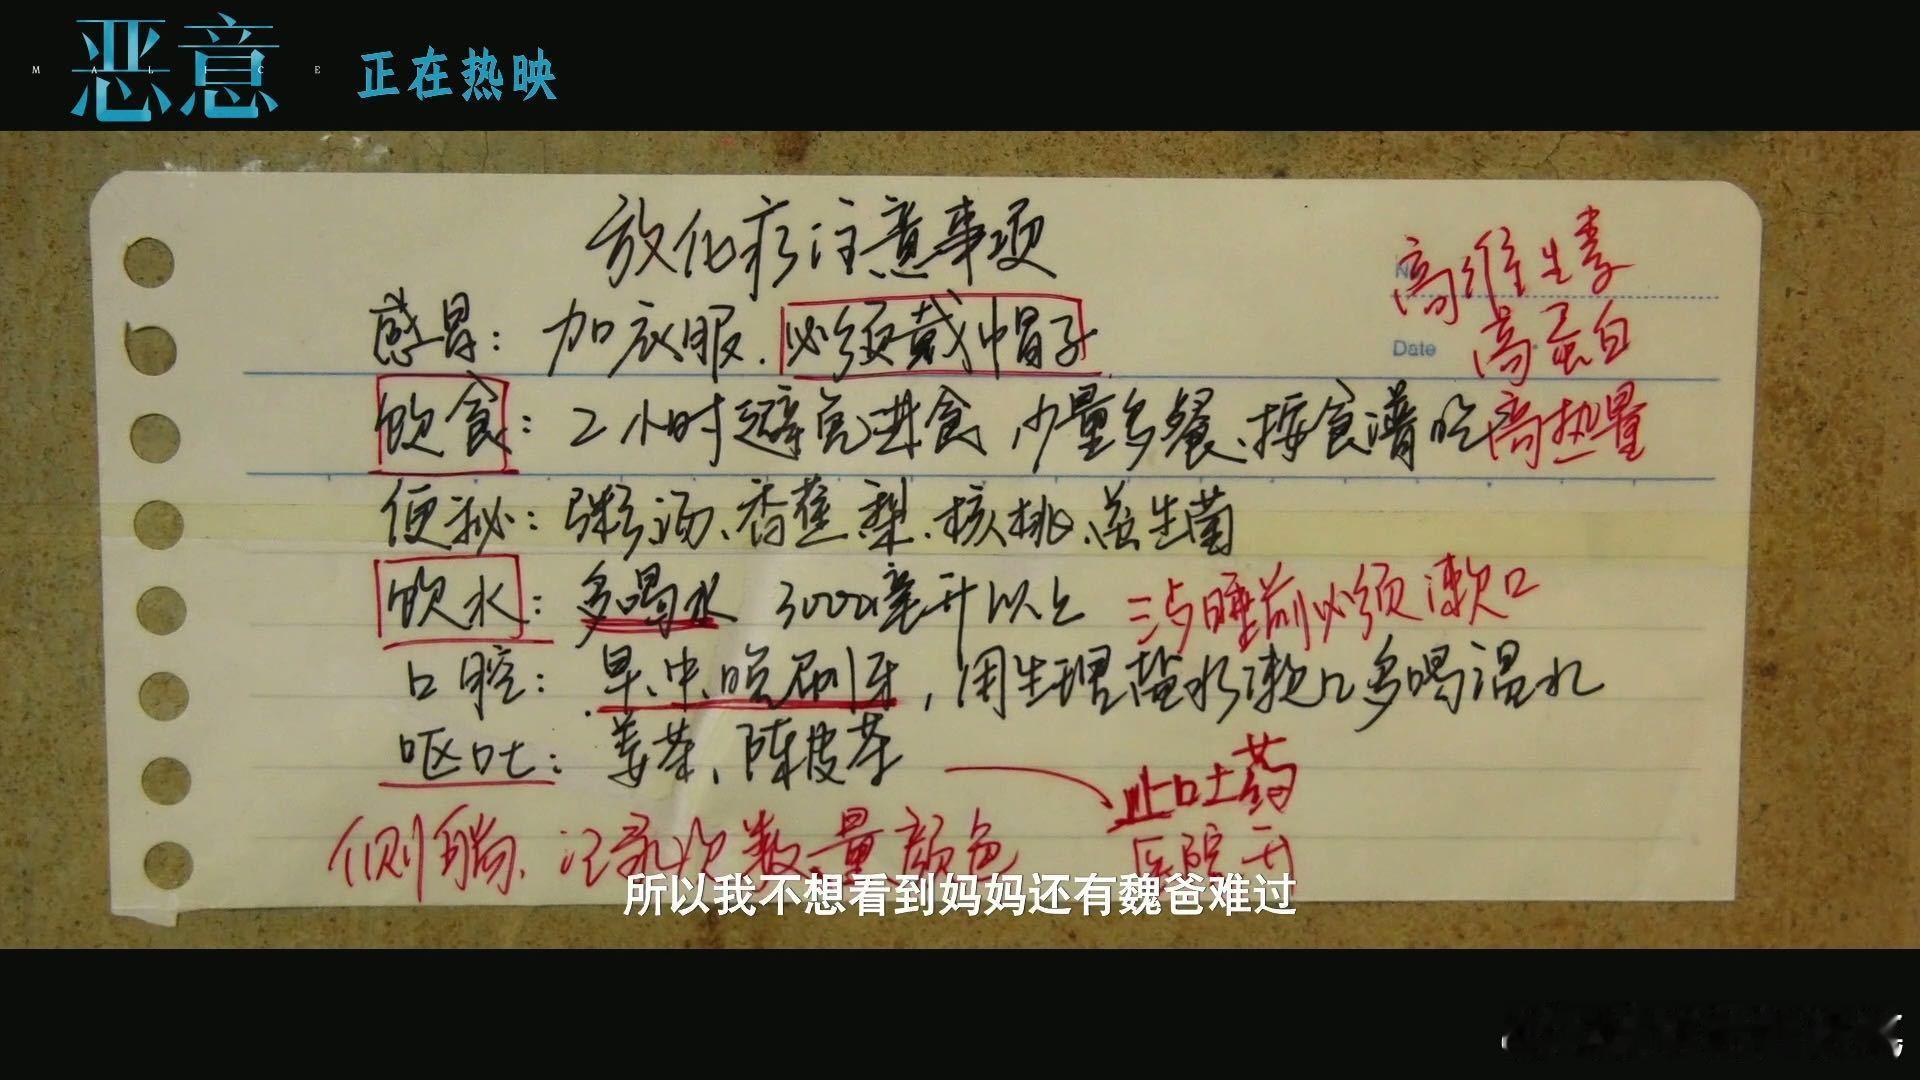 恶意
MALICE
正在热映
放化疗注意事项
高维生素
高蛋白
Date
感冒：加衣服、必须戴帽子
饮食：2小时避免进食，少量多餐、按食谱吃高热量
便秘：粥汤、香蕉、梨、核桃、益生菌
饮水：多喝水 3000毫升以上
睡前必须漱口
口腔：早、中、晚刷牙，用生理盐水漱口多喝温水
呕吐：姜茶、陈皮茶
止吐药
医院开
侧躺、记录次数量颜色
所以我不想看到妈妈还有魏爸难过